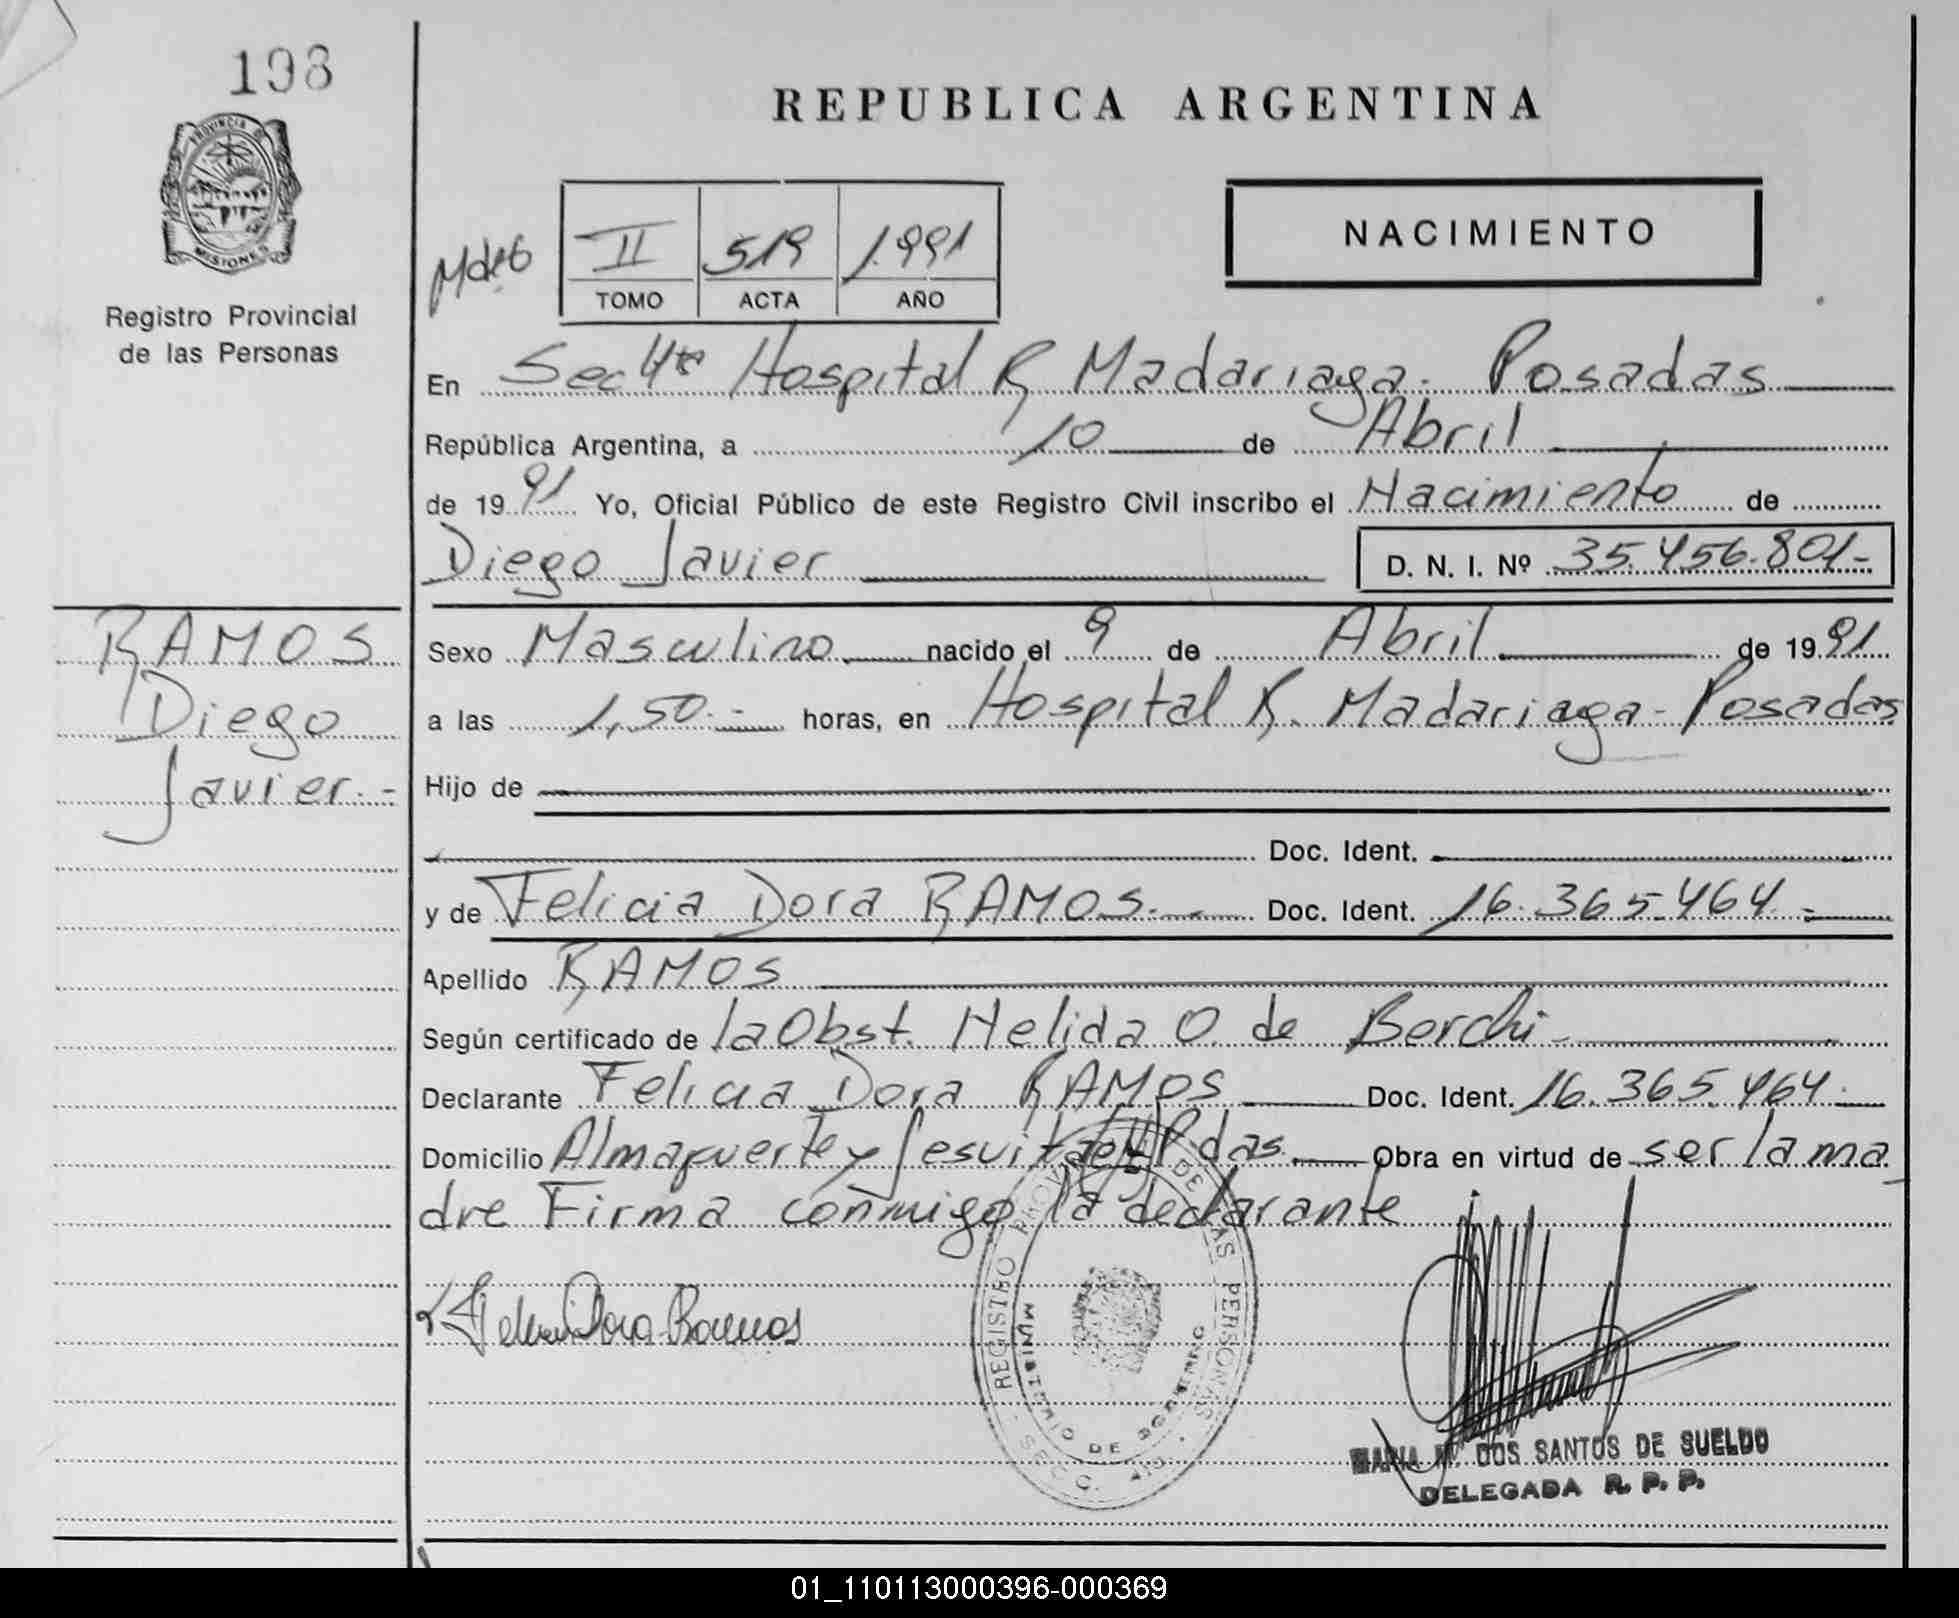 198
PROVINCIA DE
MISIONES
Registro Provincial
de las Personas
REPUBLICA ARGENTINA
NACIMIENTO
II 519 1.991
TOMO ACTA AÑO
En Sec 4ta Hospital R Madariaga - Posadas
República Argentina, a 10 de Abril
de 1991 Yo, Oficial Público de este Registro Civil inscribo el Nacimiento de
Diego Javier D. N. I. Nº 35.456.801-
RAMOS
Diego
Javier.-
Sexo Masculino nacido el 9 de Abril de 1991
a las 1,50.- horas, en Hospital R. Madariaga - Posadas
Hijo de
Doc. Ident.
y de Felicia Dora RAMOS.- Doc. Ident. 16.365.464.-
Apellido RAMOS
Según certificado de la Obst. Nelida O. de Berchi-
Declarante Felicia Dora RAMOS Doc. Ident. 16.365.464.
Domicilio Almafuerte y Jesuitas Pdas. Obra en virtud de ser la ma
dre Firma conmigo la declarante
Felicia Dora Ramos
REGISTRO PROVINCIAL DE LAS PERSONAS
MINISTERIO DE GOBIERNO
SECC. 4ta.
MARIA M. DOS SANTOS DE SUELDO
DELEGADA R. P. P.
01_110113000396-000369